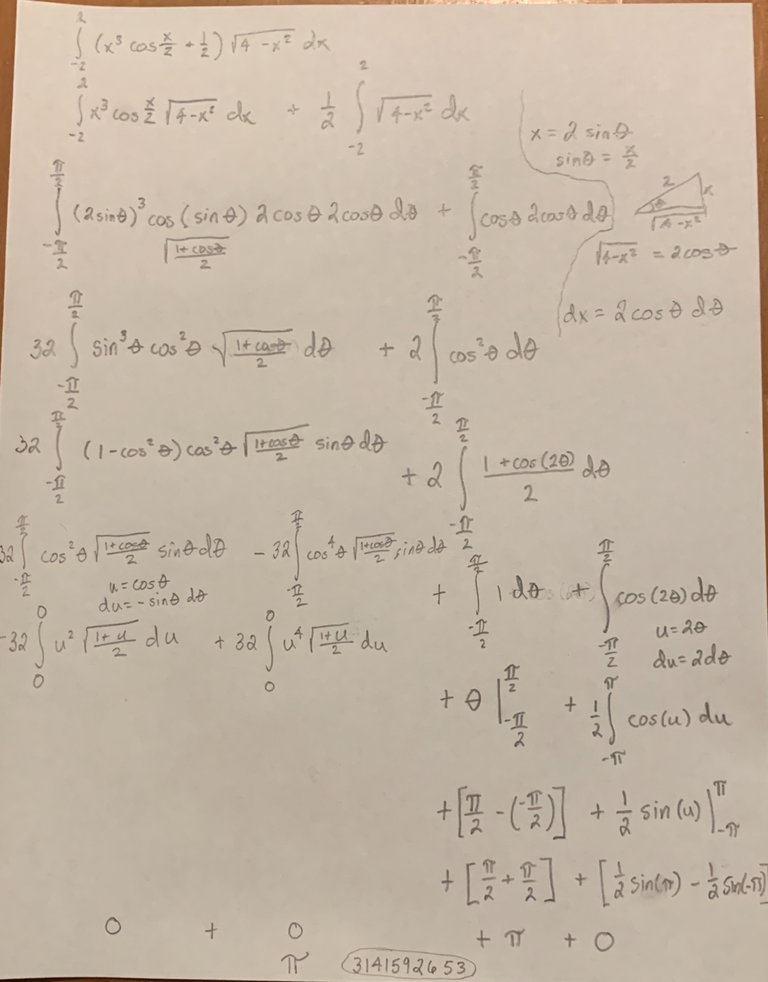 ∫_{-2}^{2} (x³ cos x/2 + 1/2) √(4-x²) dx
∫_{-2}^{2} x³ cos x/2 √(4-x²) dx + 1/2 ∫_{-2}^{2} √(4-x²) dx
x = 2 sinθ
sinθ = x/2
2 x θ √(4-x²)
√(4-x²) = 2cosθ
dx = 2cosθ dθ
∫_{-π/2}^{π/2} (2sinθ)³ cos(sinθ) 2cosθ 2cosθ dθ + ∫_{-π/2}^{π/2} cosθ 2cosθ dθ
√((1+cosθ)/2)
32 ∫_{-π/2}^{π/2} sin³θ cos²θ √((1+cosθ)/2) dθ + 2 ∫_{-π/2}^{π/2} cos²θ dθ
32 ∫_{-π/2}^{π/2} (1-cos²θ) cos²θ √((1+cosθ)/2) sinθ dθ + 2 ∫_{-π/2}^{π/2} (1+cos(2θ))/2 dθ
32 ∫_{-π/2}^{π/2} cos²θ √((1+cosθ)/2) sinθ dθ - 32 ∫_{-π/2}^{π/2} cos⁴θ √((1+cosθ)/2) sinθ dθ + ∫_{-π/2}^{π/2} 1 dθ + ∫_{-π/2}^{π/2} cos(2θ) dθ
u = cosθ
du = -sinθ dθ
u = 2θ
du = 2dθ
-32 ∫_{0}^{0} u² √((1+u)/2) du + 32 ∫_{0}^{0} u⁴ √((1+u)/2) du
+ θ |_{-π/2}^{π/2} + 1/2 ∫_{-π}^{π} cos(u) du
+ [π/2 - (-π/2)] + 1/2 sin(u) |_{-π}^{π}
+ [π/2 + π/2] + [1/2 sin(π) - 1/2 sin(-π)]
0 + 0 + π + 0
π 3141592653